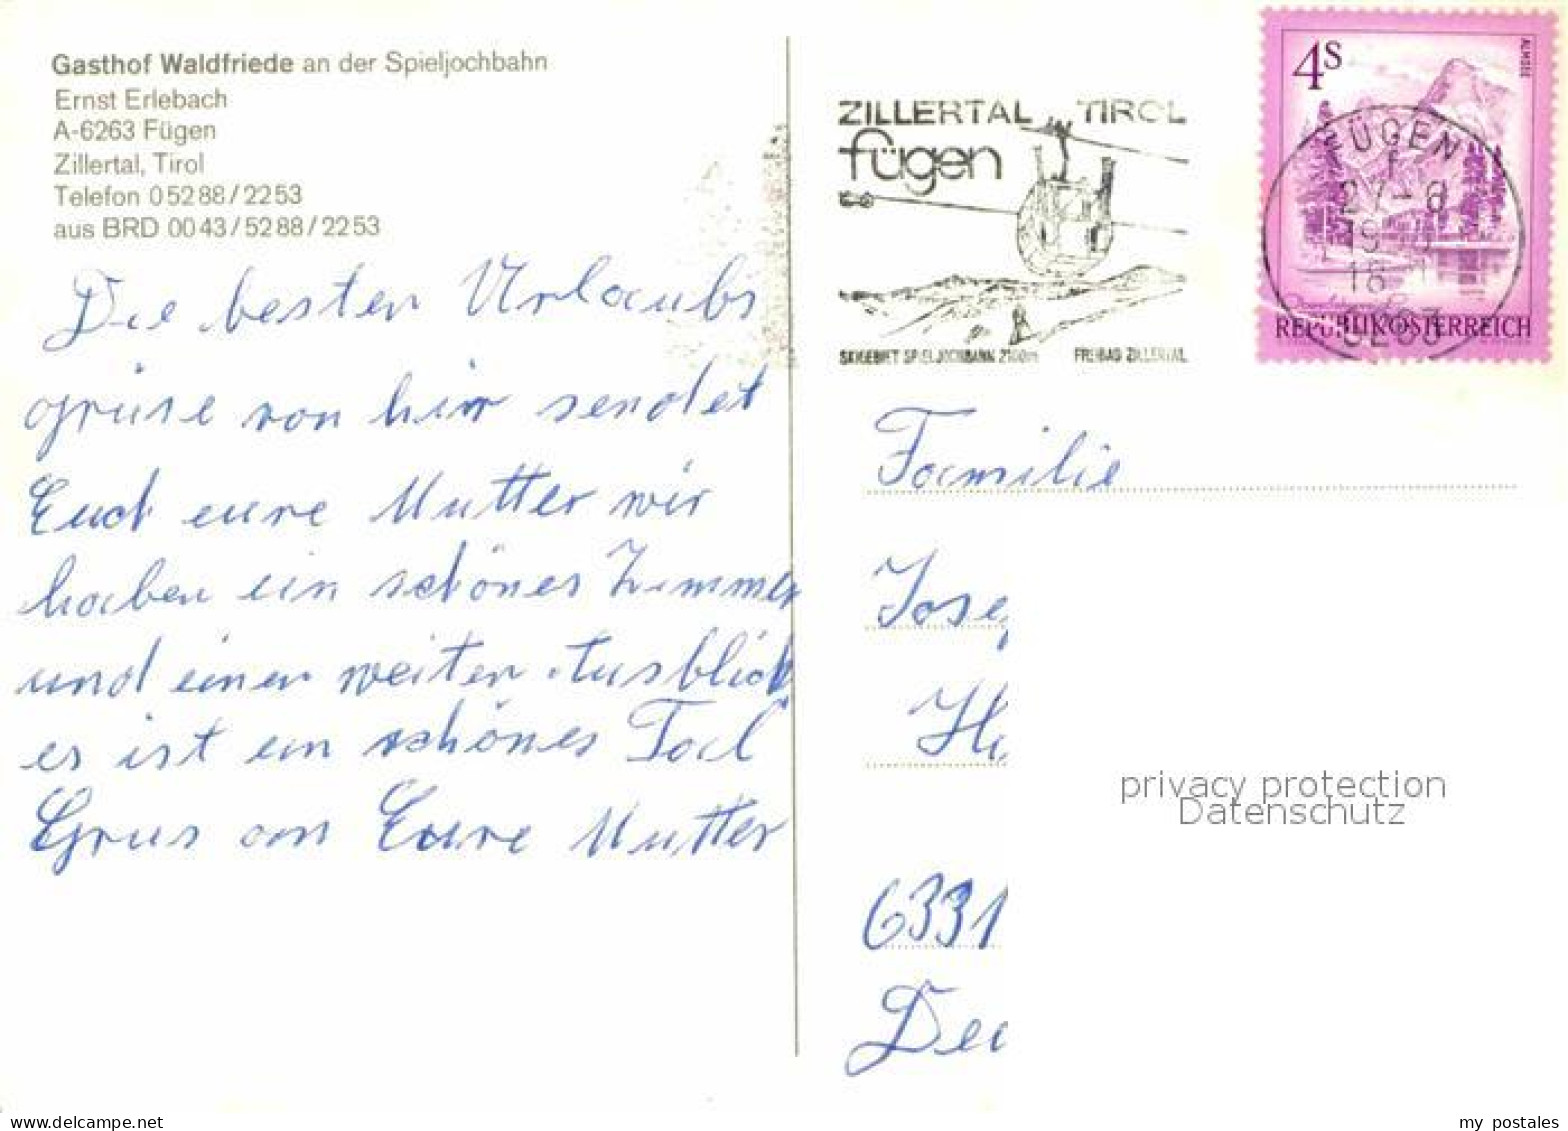 Gasthof Waldfriede an der Spieljochbahn
Ernst Erlebach
A-6263 Fügen
Zillertal, Tirol
Telefon 0 52 88 / 22 53
aus BRD 00 43 / 52 88 / 22 53
Die besten Urlaubs
grüse von hir sendet
Euch eure Mutter wir
haben ein schönes Zimmer
und einen weiten Ausblick
es ist ein schönes Tal
Grus von Eure Mutter
ZILLERTAL TIROL
fügen
SKIGEBIET SPIELJOCHBAHN 2100m FREIBAD ZILLERTAL
4S
ALMSEE
REPUBLIK ÖSTERREICH
FÜGEN
6263
Familie
Josep
Hi
6331
Deu
privacy protection
Datenschutz
delcampe.net
my_postales